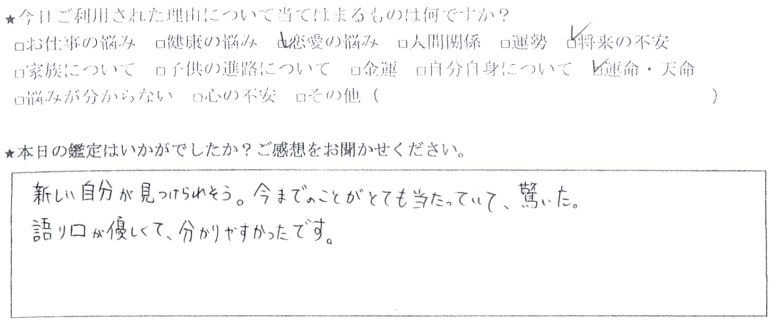 ★今日ご利用された理由について当てはまるものは何ですか？
□お仕事の悩み □健康の悩み ☑恋愛の悩み □人間関係 □運勢 ☑将来の不安
□家族について □子供の進路について □金運 □自分自身について ☑運命・天命
□悩みが分からない □心の不安 □その他（ ）
★本日の鑑定はいかがでしたか？ご感想をお聞かせください。
新しい自分が見つけられそう。今までのことがとても当たっていて、驚いた。
語り口が優しくて、分かりやすかったです。